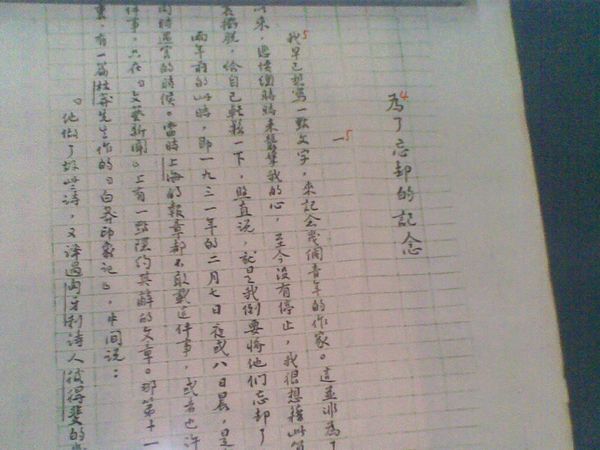 為了忘却的記念
4
一
5
5
我早已想寫一點文字，來記念幾個青年的作家。這並非為了
來，悲憤總時時來襲擊我的心，至今沒有停止，我很想藉此算
擺脫，給自己輕鬆一下，照直說，就是我倒要將他們忘却了
兩年前的此時，即一九三一年的二月七日夜或八日晨，是
同時遇害的時候。當時上海的報章都不敢載這件事，或者也許
件事，只在「文藝新聞」上有一點隱約其辭的文章。那第十一
裏，有一篇林莽先生作的「白莽印象記」，中間說：
。他做了好些詩，又譯過匈牙利詩人彼得斐的